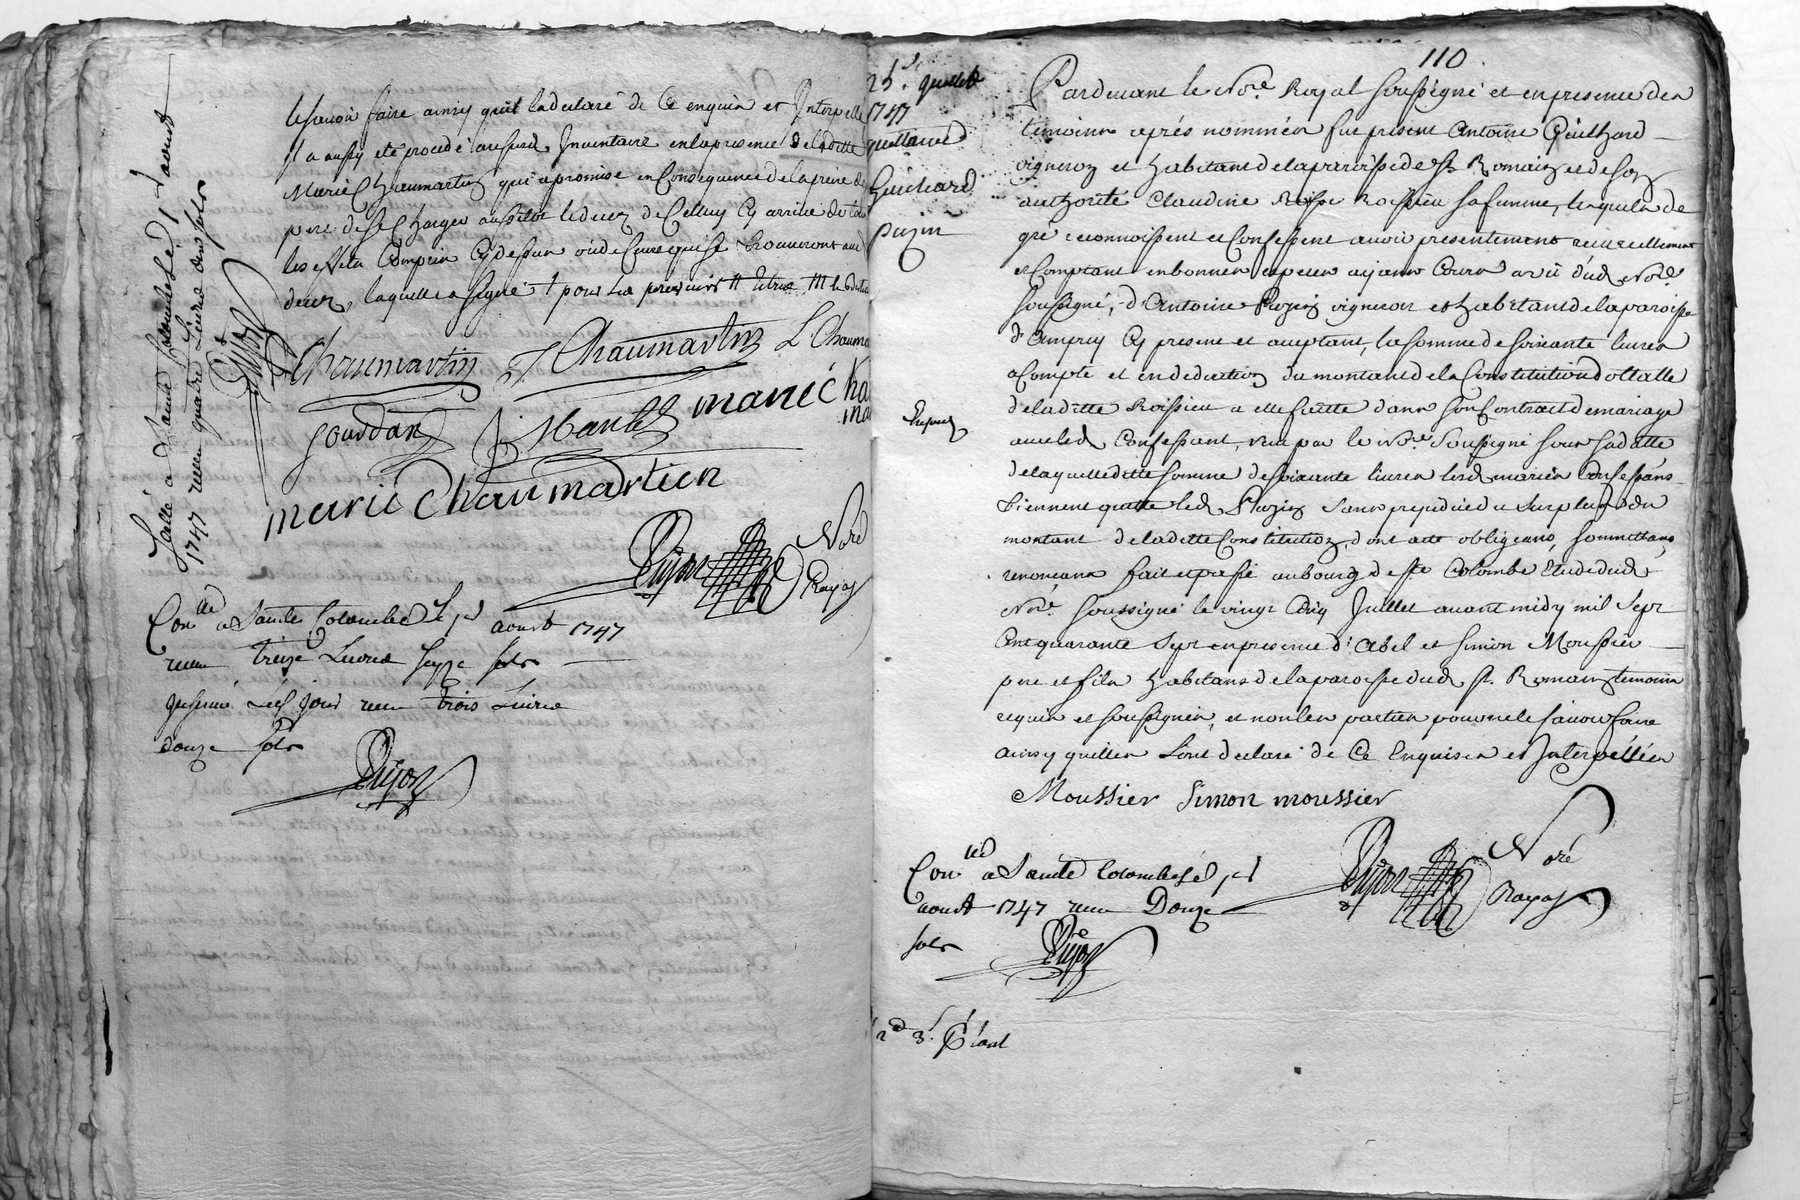 le savoir faire ainsy quil la declaré de ce enquis et Interpellé
Il a aussy eté procedé au susd. Inventaire en la presence de laditte
Marie Chaumartin qui a promise en Consequence de la priere de
pere de se charger aussitot le deces de Celluy Cy arrivé de tous
les effets Compris Cy dessus
deux, laquelle a signé
Chaumartin J Chaumartin L Chauma
Jourdan marié cha
marié Chaumartien
Dujon Noré
Royal
Con.lé a Sainte Colombe Le 1er aoust 1747
receu treize Livres seize sols
Insinué Led. jour receu trois Livres
douze sols
Dujon
Scellé a Sainte Colombe Le 1er aoust
1747 receu quatre Livres dix sols
Dujon
25e. Juillet
1747
quittance
Guichard
110
Pardevant le Nore. Royal soussigné et en presence des
temoins aprés nommés fut present Antoine Guichard
vigneron et habitant de la paroisse de St. Romain et de son
authorité Claudine Roissieu sa femme, lesquels de
gré reconnoissent et Confessent avoir presentement receu reellement
et Comptant en bonnes especes ayants Cours a vü dud. Nore.
soussigné, d'Antoine vigneron et habitant de la paroisse
d'Ampuy Cy present et aceptant, la somme de soixante livres
a Compte et en deduction du montant de la Constitution dottalle
de laditte Roissieu a elle faitte dans son Contract de mariage
avec led. Confessant, receu par le Nore. soussigné sous sa datte
de laquelleditte somme de soixante livres lesd. mariés Confessans
tiennent quitte led. sans prejudice du surplus du
montant de laditte Constitution, dont acte obligeans, soumettans,
renonceans fait et passé au bourg de Ste Colombe Etude dud.
Nore. soussigné le vingt Cinq Juillet avant midy mil sept
Cent quarante sept en presence d'Abel et Simon Moussier
pere et fils habitans de la paroisse dud. St. Romain temoins
requis et soussignés, et non les parties pour ne le savoir faire
ainsy quelles l'ont declaré de Ce Enquises et Interpellées
Moussier Simon moussier
Dujon Noré
Royal
Con.lé a Sainte Colombe Le 1er
aoust 1747 receu Douze
sols
Dujon